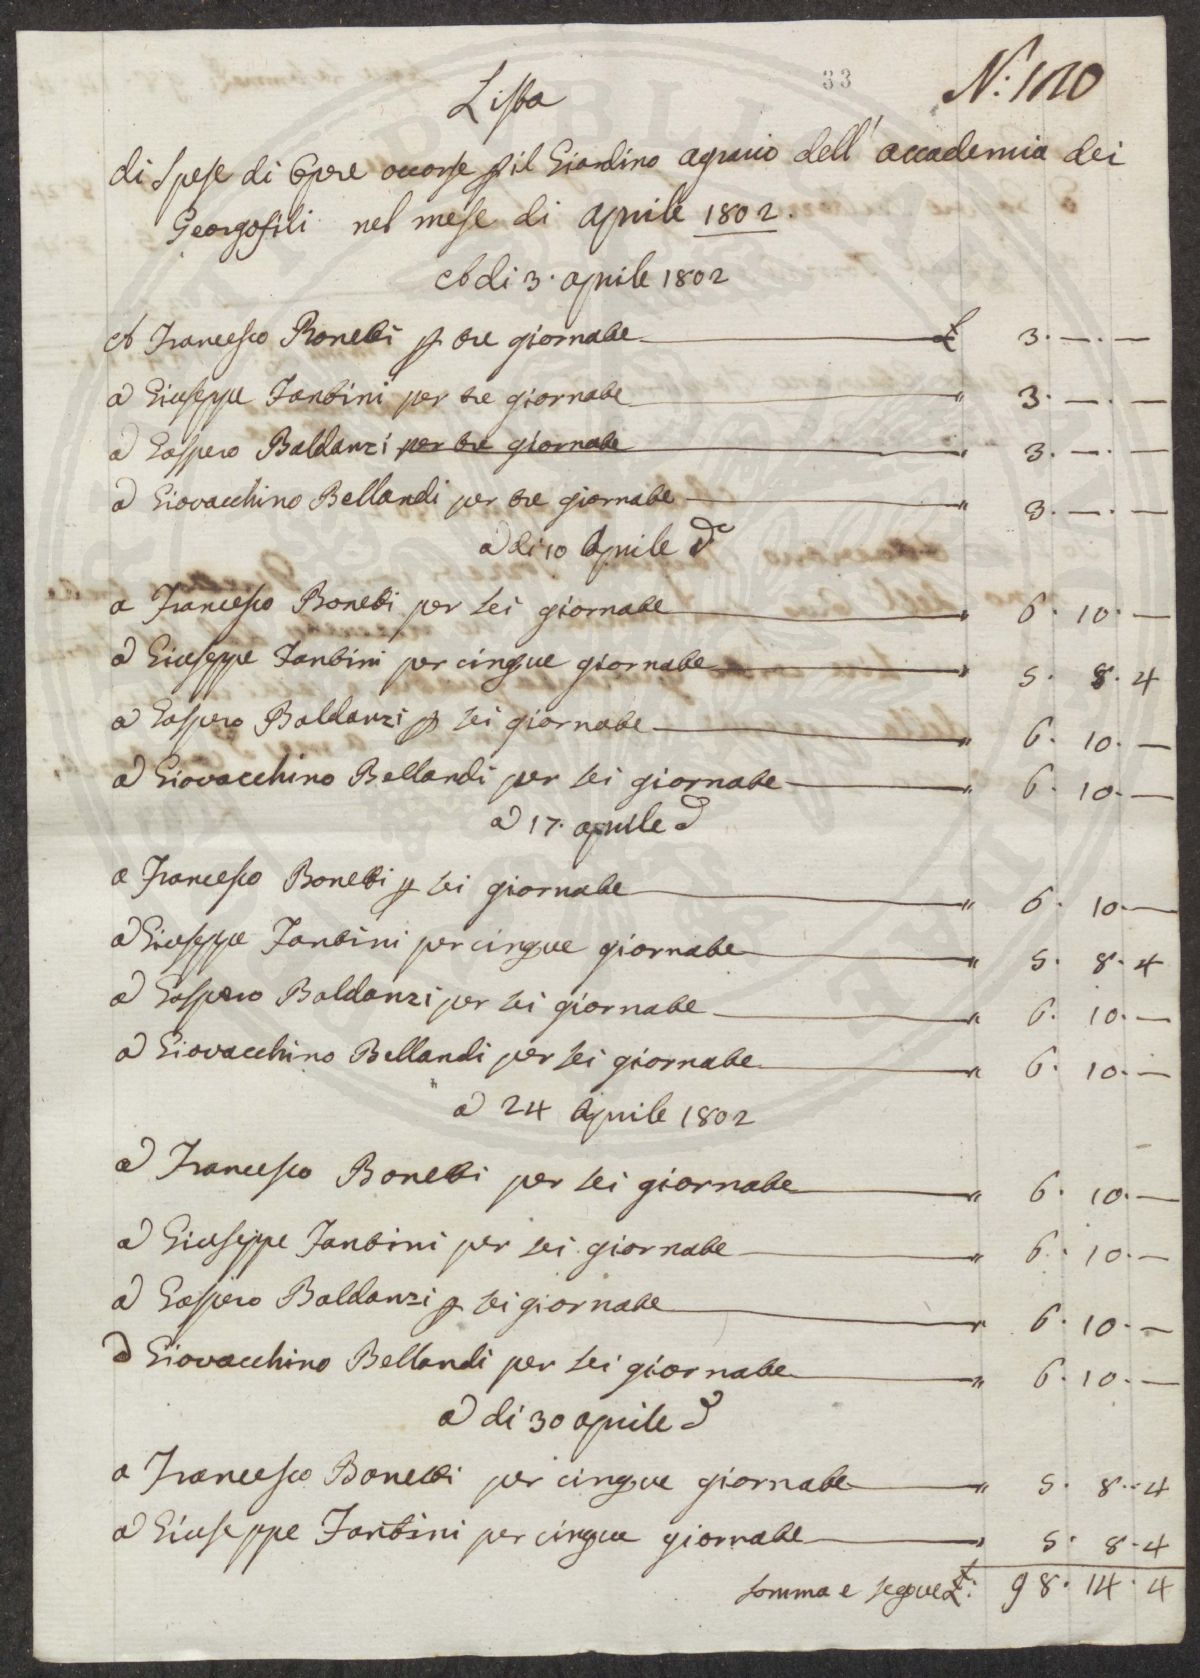 33
N: 120
Lista
di Spese di Opere occorse p il Giardino agrario dell' accademia dei
Georgofili nel mese di Aprile 1802.
A di 3. aprile 1802
A Francesco Bonetti p tre giornate £ 3. —. —
a Giuseppe Fantini per tre giornate " 3. —. —
a Gaspero Baldanzi per tre giornate " 3. —. —
a Giovacchino Bellandi per tre giornate " 3. —. —
a di 10 Aprile d.o
a Francesco Bonetti per sei giornate " 6. 10. —
a Giuseppe Fantini per cinque giornate " 5. 8. 4
a Gaspero Baldanzi p sei giornate " 6. 10. —
a Giovacchino Bellandi per sei giornate " 6. 10. —
a 17. aprile d
a Francesco Bonetti p sei giornate " 6. 10. —
a Giuseppe Fantini per cinque giornate " 5. 8. 4
a Gaspero Baldanzi per sei giornate " 6. 10. —
a Giovacchino Bellandi per sei giornate " 6. 10. —
a 24 Aprile 1802
a Francesco Bonetti per sei giornate " 6. 10. —
a Giuseppe Fantini per sei giornate " 6. 10. —
a Gaspero Baldanzi p sei giornate " 6. 10. —
a Giovacchino Bellandi per sei giornate " 6. 10. —
a di 30 aprile d
a Francesco Bonetti per cinque giornate " 5. 8. 4
a Giuseppe Fantini per cinque giornate " 5. 8. 4
somma e segue £: 98. 14. 4